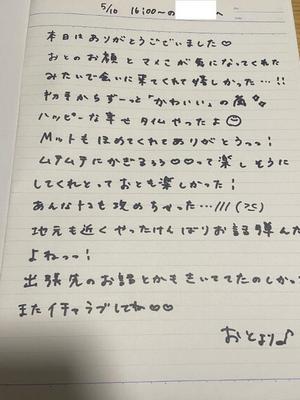 5/10 16:00〜の へ
本日はありがとうございました♡
おとのお顔とマメさが気になってくれた
みたいで会いに来てくれて嬉しかった…!!
初手からずーっと「かわいい」の嵐
ハッピーな幸せタイムやったよ☺
Mットもほめてくれてありがとうっっ!
ムチムチにかぎるるる♡♡って楽しそうに
してくれとっておとも楽しかった!
あんなトコも攻めちゃった…///
地元も近くやったけんばりお話弾んだ
よねっっ!
出張先のお話とかもきいててたのしかっ
またイチャラブしてね♡♡
おとより♪